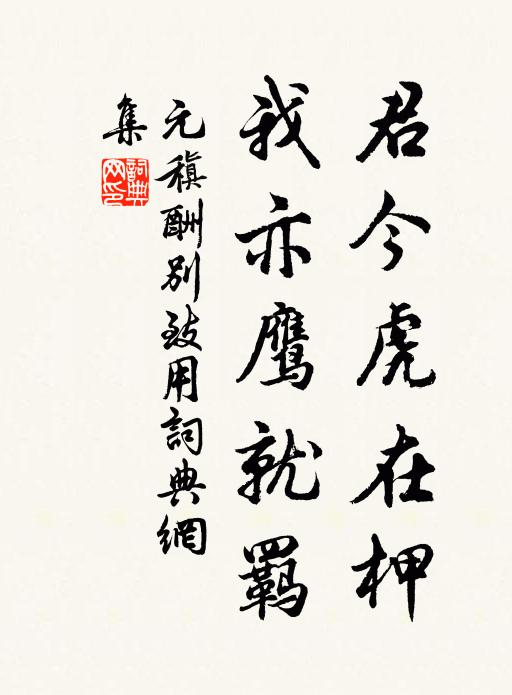 君今虎在柙
我亦鹰就羁
元稹酬别致用詞典網
集
詞典網印